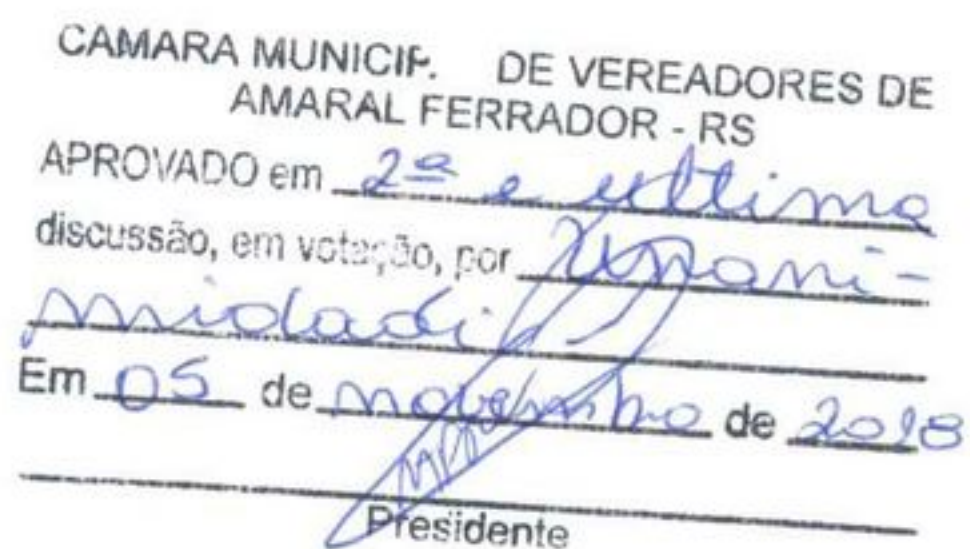 CAMARA MUNICIP. DE VEREADORES DE
AMARAL FERRADOR - RS
APROVADO em 2ª e ultima
discussão, em votação, por Unani-
midade
Em 05 de novembro de 2018
Presidente